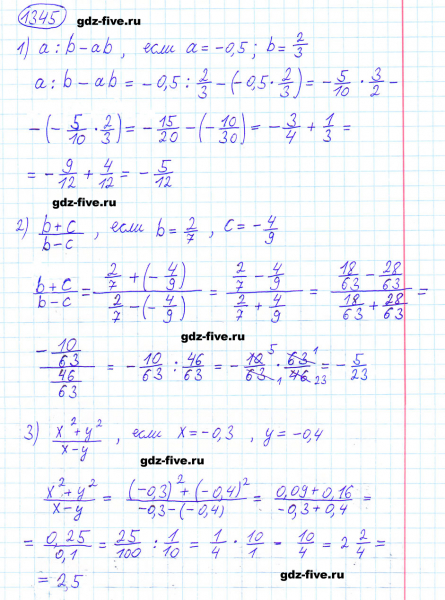 1345 gdz-five.ru
1) a : b − ab, если a = −0,5; b = 2/3
a : b − ab = −0,5 : 2/3 − (−0,5 · 2/3) = −5/10 · 3/2 −
− (−5/10 · 2/3) = −15/20 − (−10/30) = −3/4 + 1/3 =
= −9/12 + 4/12 = −5/12
gdz-five.ru
2) (b+c)/(b−c), если b = 2/7, c = −4/9
(b+c)/(b−c) = (2/7 + (−4/9))/(2/7 − (−4/9)) = (2/7 − 4/9)/(2/7 + 4/9) = (18/63 − 28/63)/(18/63 + 28/63) =
gdz-five.ru
(−10/63)/(46/63) = −10/63 : 46/63 = −10 5/63 1 · 63 1/46 23 = −5/23
gdz-five.ru
3) (x²+y²)/(x−y), если x = −0,3, y = −0,4
gdz-five.ru
(x²+y²)/(x−y) = ((−0,3)² + (−0,4)²)/(−0,3 − (−0,4)) = (0,09 + 0,16)/(−0,3 + 0,4) =
= 0,25/0,1 = 25/100 : 1/10 = 1/4 · 10/1 = 10/4 = 2 2/4 =
= 2,5 gdz-five.ru